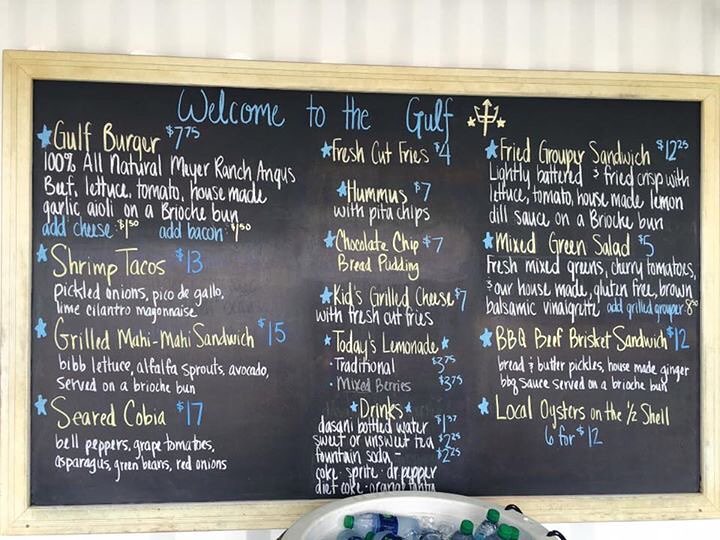 Welcome to the Gulf
Gulf Burger $7.75
100% All Natural Meyer Ranch Angus
Beef, lettuce, tomato, house made
garlic aioli on a Brioche bun
add cheese $1.50 add bacon $1.50
Shrimp Tacos $13
pickled onions, pico de gallo,
lime cilantro mayonnaise
Grilled Mahi-Mahi Sandwich $15
bibb lettuce, alfalfa sprouts, avocado,
served on a brioche bun
Seared Cobia $17
bell peppers, grape tomatoes,
asparagus, green beans, red onions
Fresh Cut Fries $4
Hummus $7
with pita chips
Chocolate Chip $7
Bread Pudding
Kid's Grilled Cheese $7
with fresh cut fries
Today's Lemonade
· Traditional $3.75
· Mixed Berries $3.75
Drinks
dasani bottled water $1.37
sweet or unsweet tea $2.25
fountain soda - $2.25
coke · sprite · dr pepper
diet coke · orange fanta
Fried Grouper Sandwich $12.25
Lightly battered & fried crisp with
lettuce, tomato, house made lemon
dill sauce on a Brioche bun
Mixed Green Salad $5
Fresh mixed greens, cherry tomatoes,
& our house made, gluten free, brown
balsamic vinaigrette add grilled grouper
BBQ Beef Brisket Sandwich $12
bread & butter pickles, house made ginger
bbq sauce served on a brioche bun
Local Oysters on the 1/2 Shell
6 for $12